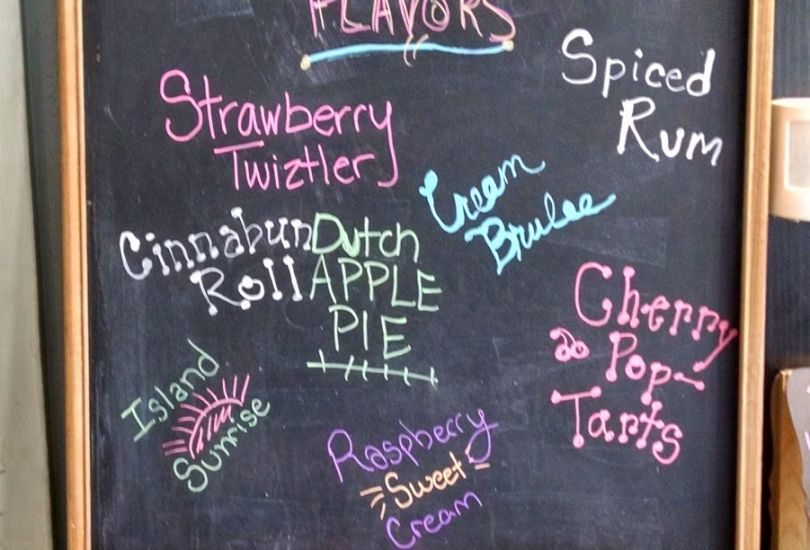 FLAVORS
Spiced
Rum
Strawberry
Twiztler
Cream
Brulee
Cinnabun
Roll
Dutch
APPLE
PIE
Cherry
Pop-
Tarts
Island
Sunrise
Raspberry
Sweet
Cream